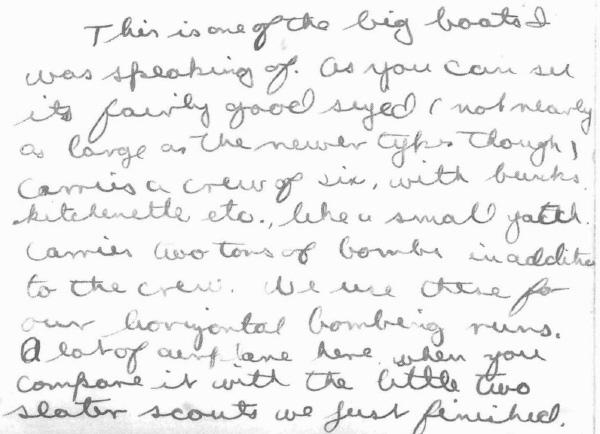 This is one of the big boats I
was speaking of. As you can see
its fairly good sized (not nearly
as large as the newer types though)
Carries a crew of six, with bunks,
kitchenette etc., like a small yacth.
Carries two tons of bombs in addition
to the crew. We use these for
our horizontal bombing runs.
A lot of airplane here when you
compare it with the little two
seater scouts we just finished.